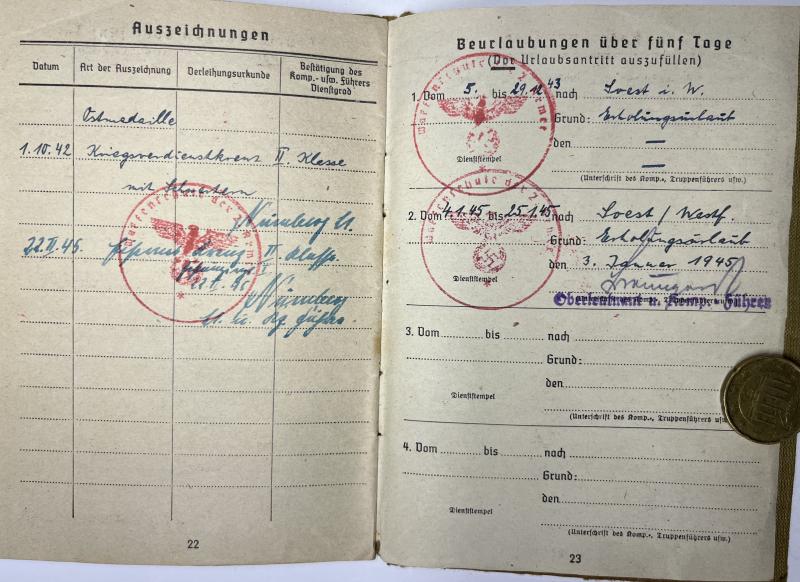 Auszeichnungen
Datum
Art der Auszeichnung
Verleihungsurkunde
Bestätigung des
Komp.- usw. Führers
Dienstgrad
Ostmedaille
1.10.42 Kriegsverdienstkreuz II. Klasse
mit Schwertern
Waffenschule der 2. Armee
Nürnberg
Kreuz II Klasse
Nürnberg
22
Beurlaubungen über fünf Tage
(Vor Urlaubsantritt auszufüllen)
1. Vom 5. bis 29.12.43 nach Soest i. W.
Grund: Erholungsurlaub
den —
—
Dienststempel
(Unterschrift des Komp.-, Truppenführers usw.)
Waffenschule der 2. Armee
2. Vom 4.1.45 bis 25.1.45 nach Soest / Westf.
Grund: Erholungsurlaub
den 3. Januar 1945
Dienststempel
Waffenschule der 2. Armee
Oberleutnant u. Komp.-Führer
3. Vom bis nach
Grund:
den
Dienststempel
(Unterschrift des Komp.-, Truppenführers usw.)
4. Vom bis nach
Grund:
den
Dienststempel
(Unterschrift des Komp.-, Truppenführers usw.)
23